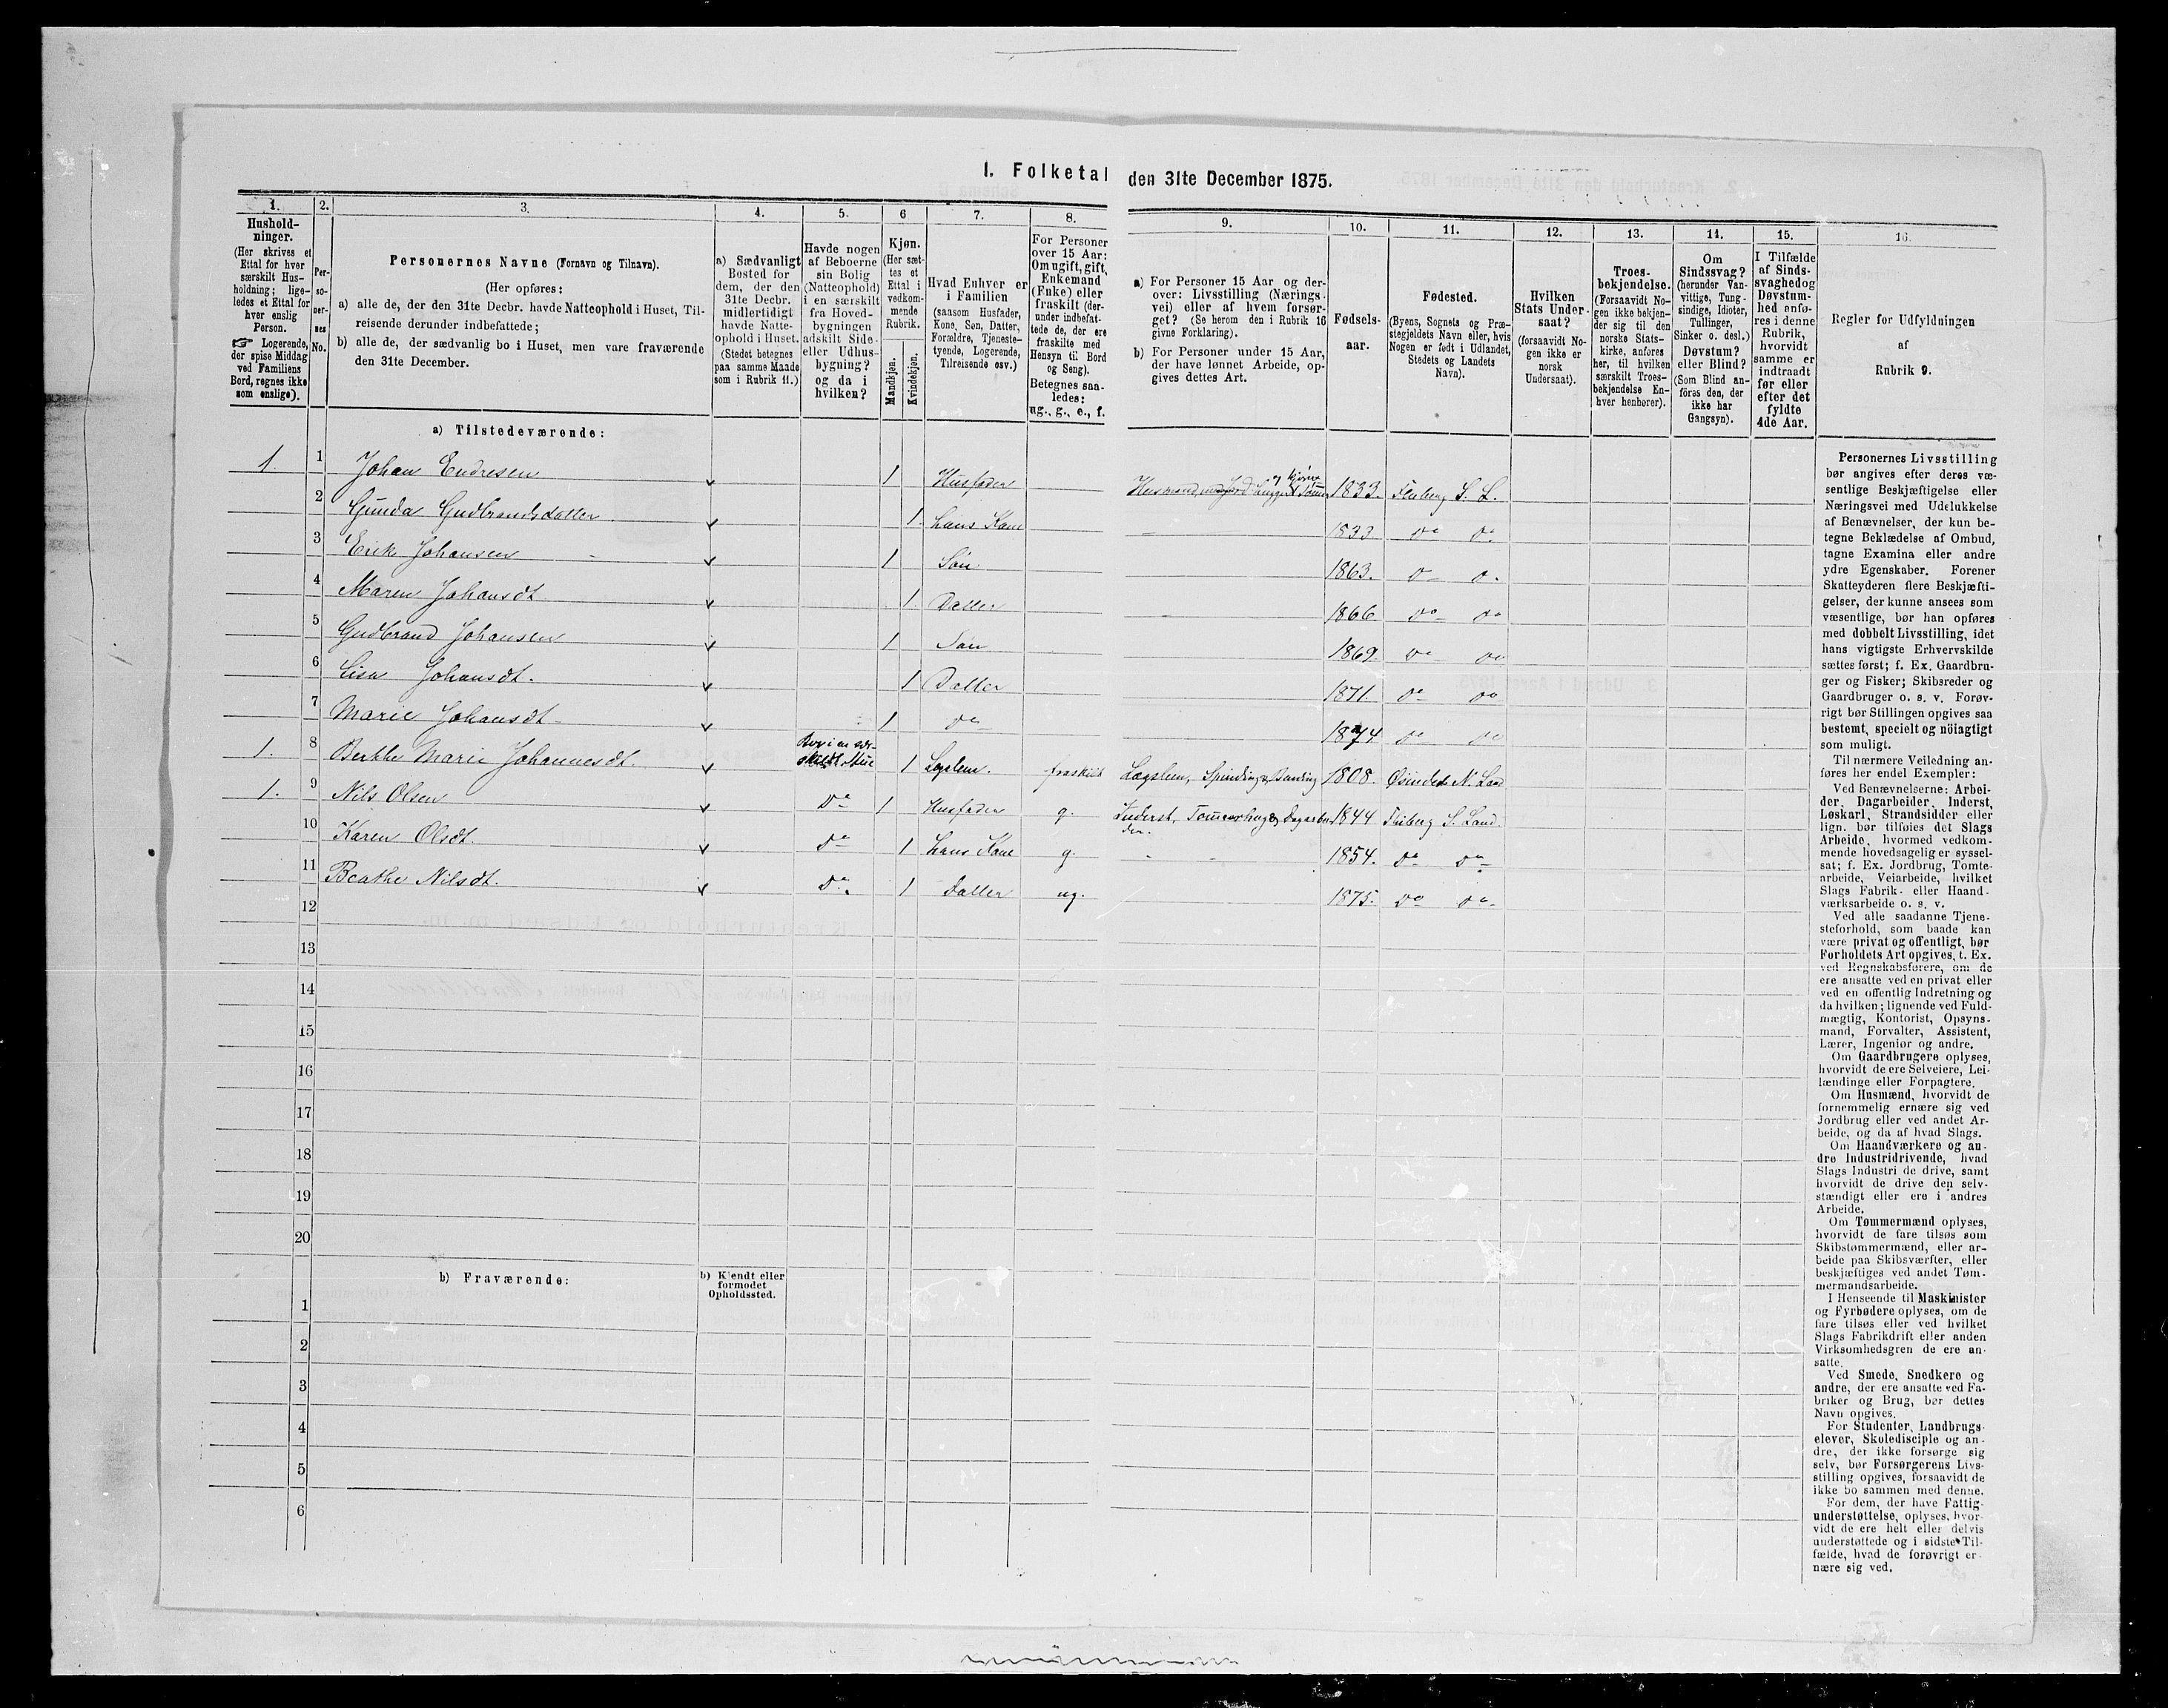 I. Folketal den 31te December 1875.
1. 2. 3. 4. 5. 6 7. 8. 9. 10. 11. 12. 13. 14. 15. 16.
Hushold-
ninger.
(Her skrives et
Ettal for hver
særskilt Hus-
holdning; lige-
ledes et Ettal for
hver enslig
Person.
☞ Logerende,
der spise Middag
ved Familiens
Bord, regnes ikke
som enslige).
Per-
so-
ner-
nes
No.
Personernes Navne (Fornavn og Tilnavn).
(Her opføres:
a) alle de, der den 31te Decbr. havde Natteophold i Huset, Til-
reisende derunder indbefattede;
b) alle de, der sædvanlig bo i Huset, men vare fraværende
den 31te December.
a) Sædvanligt
Bosted for
dem, der den
31te Decbr.
midlertidigt
havde Natte-
ophold i Huset.
(Stedet betegnes
paa samme Maade
som i Rubrik 11.)
Havde nogen
af Beboerne
sin Bolig
(Natteophold)
i en særskilt
fra Hoved-
bygningen
adskilt Side-
eller Udhus-
bygning?
og da i
hvilken?
Kjøn.
(Her sæt-
tes et
Ettal i
vedkom-
mende
Rubrik.
Mandkjøn.
Kvindekjøn.
Hvad Enhver er
i Familien
(saasom Husfader,
Kone, Søn, Datter,
Forældre, Tjeneste-
tyende, Logerende,
Tilreisende osv.)
For Personer
over 15 Aar:
Om ugift, gift,
Enkemand
(Enke) eller
fraskilt (der-
under indbefat-
tede de, der ere
fraskilte med
Hensyn til Bord
og Seng).
Betegnes saa-
ledes:
ug., g., e., f.
a) For Personer 15 Aar og der-
over: Livsstilling (Nærings-
vei) eller af hvem forsør-
get? (Se herom den i Rubrik 16
givne Forklaring).
b) For Personer under 15 Aar,
der have lønnet Arbeide, op-
gives dettes Art.
Fødsels-
aar.
Fødested.
(Byens, Sognets og Præ-
stegjeldets Navn eller, hvis
Nogen er født i Udlandet,
Stedets og Landets
Navn).
Hvilken
Stats Under-
saat?
(forsaavidt No-
gen ikke er
norsk
Undersaat).
Troes-
bekjendelse.
(Forsaavidt No-
gen ikke bekjen-
der sig til den
norske Stats-
kirke, anføres
her, til hvilken
særskilt Troes-
bekjendelse En-
hver henhører).
Om
Sindssvag?
(herunder Van-
vittige, Tung-
sindige, Idioter,
Tullinger,
Sinker o. desl.)
Døvstum?
eller Blind?
(Som Blind an-
føres den, der
ikke har
Gangsyn).
I Tilfælde
af Sinds-
svaghed og
Døvstum-
hed anfø-
res i denne
Rubrik,
hvorvidt
samme er
indtraadt
før eller
efter det
fyldte
4de Aar.
Regler for Udfyldningen
af
Rubrik 9.
a) Tilstedeværende:
1. 1 Johan Endresen v 1 Husfader Husmand med Jord og kjører 1833. Fluberg S. L.
2 Gunda Gudbrandsdatter. v 1. hans Kone 1833 do do
3 Erik Johansen v 1 Søn 1863. do do
4 Maren Johansdt v 1. Datter 1866. do do
5 Gudbrand Johansen v 1 Søn 1869. do do
6 Lisa Johansdt. v 1 Datter 1871. do do
7 Marie Johansdt v 1 do 1874 do do
1. 8 Berthe Marie Johannesdt. v Bor i en sær- 1 Lægslem. fraskilt Lægslem, Spinding 1808. N. Land
1. 9 Nils Olsen v do 1 Husfader g. Inderst, Tømmerhug og Dagarbei- 1844 Fluberg S. Land.
der.
10 Karen Olsdt. v do 1 hans Kone g. 1854. do do
11 Beathe Nilsdt. v do. 1 Datter ug. 1875. do do
12
13
14
15
16
17
18
19
20
b) Fraværende:
b) Kjendt eller
formodet
Opholdssted.
1
2
3
4
5
6
Personernes Livsstilling
bør angives efter deres væ-
sentlige Beskjæftigelse eller
Næringsvei med Udelukkelse
af Benævnelser, der kun be-
tegne Beklædelse af Ombud,
tagne Examina eller andre
ydre Egenskaber. Forener
Skatteyderen flere Beskjæfti-
gelser, der kunne ansees som
væsentlige, bør han opføres
med dobbelt Livsstilling, idet
hans vigtigste Erhvervskilde
sættes først; f. Ex. Gaardbru-
ger og Fisker; Skibsreder og
Gaardbruger o. s. v. Forøv-
rigt bør Stillingen opgives saa
bestemt, specielt og nöiagtigt
som muligt.
Til nærmere Veiledning an-
føres her endel Exempler:
Ved Benævnelserne: Arbei-
der, Dagarbeider, Inderst,
Løskarl, Strandsidder eller
lign. bør tilføies det Slags
Arbeide, hvormed vedkom-
mende hovedsagelig er syssel-
sat; f. Ex. Jordbrug, Tomte-
arbeide, Veiarbeide, hvilket
Slags Fabrik- eller Haand-
værksarbeide o. s. v.
Ved alle saadanne Tjene-
steforhold, som baade kan
være privat og offentligt, bør
Forholdets Art opgives, t. Ex.
ved Regnskabsførere, om de
ere ansatte ved en privat eller
ved en offentlig Indretning og
da hvilken; lignende ved Fuld-
mægtig, Kontorist, Opsyns-
mand, Forvalter, Assistent,
Lærer, Ingeniør og andre.
Om Gaardbrugere oplyses,
hvorvidt de ere Selveiere, Lei-
lændinge eller Forpagtere.
Om Husmænd, hvorvidt de
fornemmelig ernære sig ved
Jordbrug eller ved andet Ar-
beide, og da af hvad Slags.
Om Haandværkere og an-
dre Industridrivende, hvad
Slags Industri de drive, samt
hvorvidt de drive den selv-
stændigt eller ere i andres
Arbeide.
Om Tømmermænd oplyses,
hvorvidt de fare tilsøs som
Skibstømmermænd, eller ar-
beide paa Skibsværfter, eller
beskjæftiges ved andet Tøm-
mermandsarbeide.
I Henseende til Maskinister
og Fyrbødere oplyses, om de
fare tilsøs eller ved hvilket
Slags Fabrikdrift eller anden
Virksomhedsgren de ere an-
satte.
Ved Smede, Snedkere og
andre, der ere ansatte ved Fa-
briker og Brug, bør dettes
Navn opgives.
For Studenter, Landbrugs-
elever, Skoledisciple og an-
dre, der ikke forsørge sig
selv, bør Forsørgerens Livs-
stilling opgives, forsaavidt de
ikke bo sammen med denne.
For dem, der have Fattig-
understøttelse, oplyses, hvor-
vidt de ere helt eller delvis
understøttede og i sidste Til-
fælde, hvad de forøvrigt er-
nære sig ved.